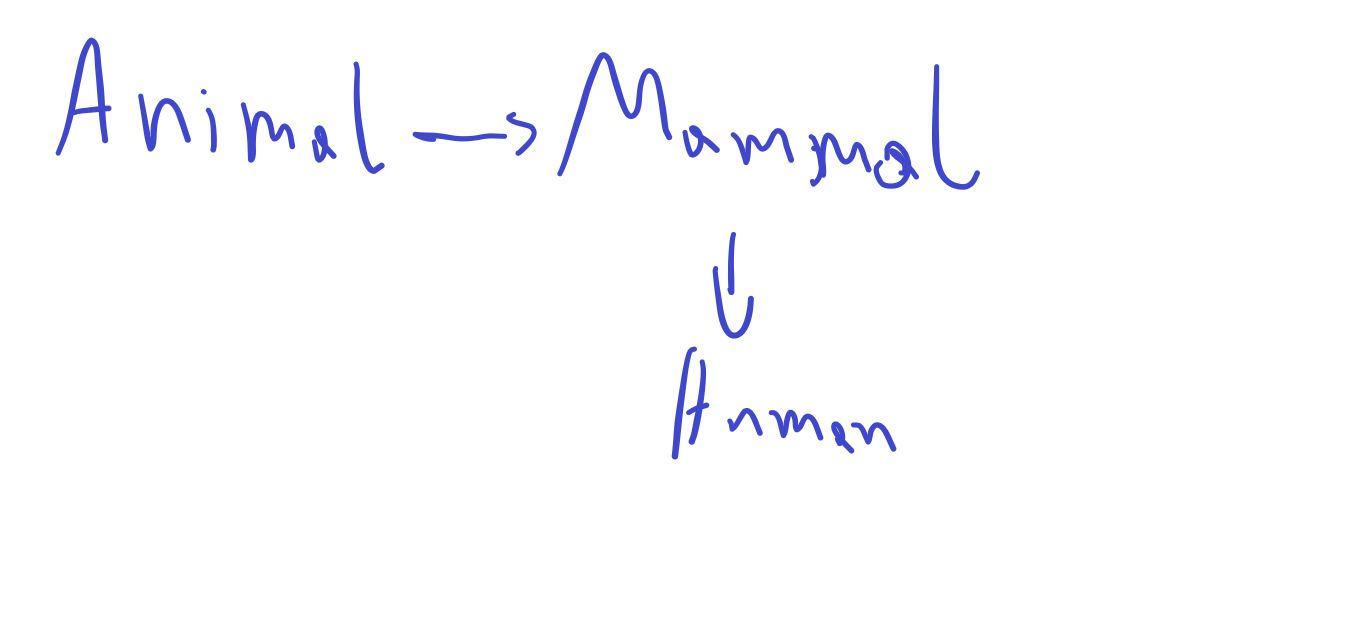 Animal → Mammal
↓
Human